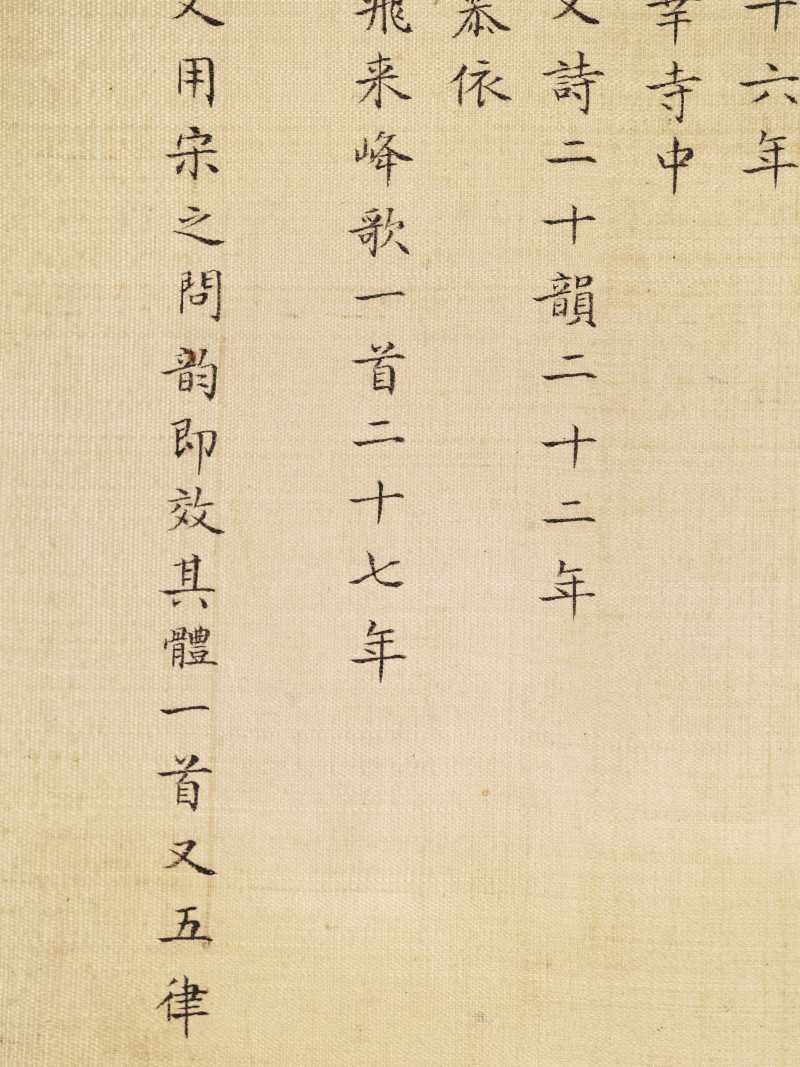 十六年
幸寺中
文詩二十韻二十二年
恭依
飛来峰歌一首二十七年
又用宋之問韵即效其體一首又五律